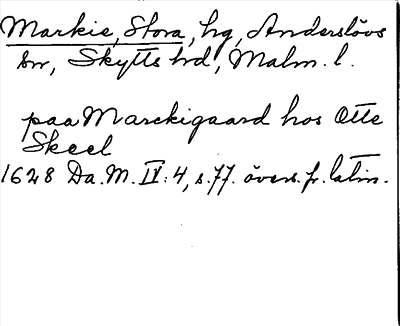 Markie, Stora, hg, Anderslövs
sn, Skytts hd, Malm. l.
paa Marckigaard hos Otte
Skeel
1628 Da. M. IV: 4, s. 77. övers. fr. latin.